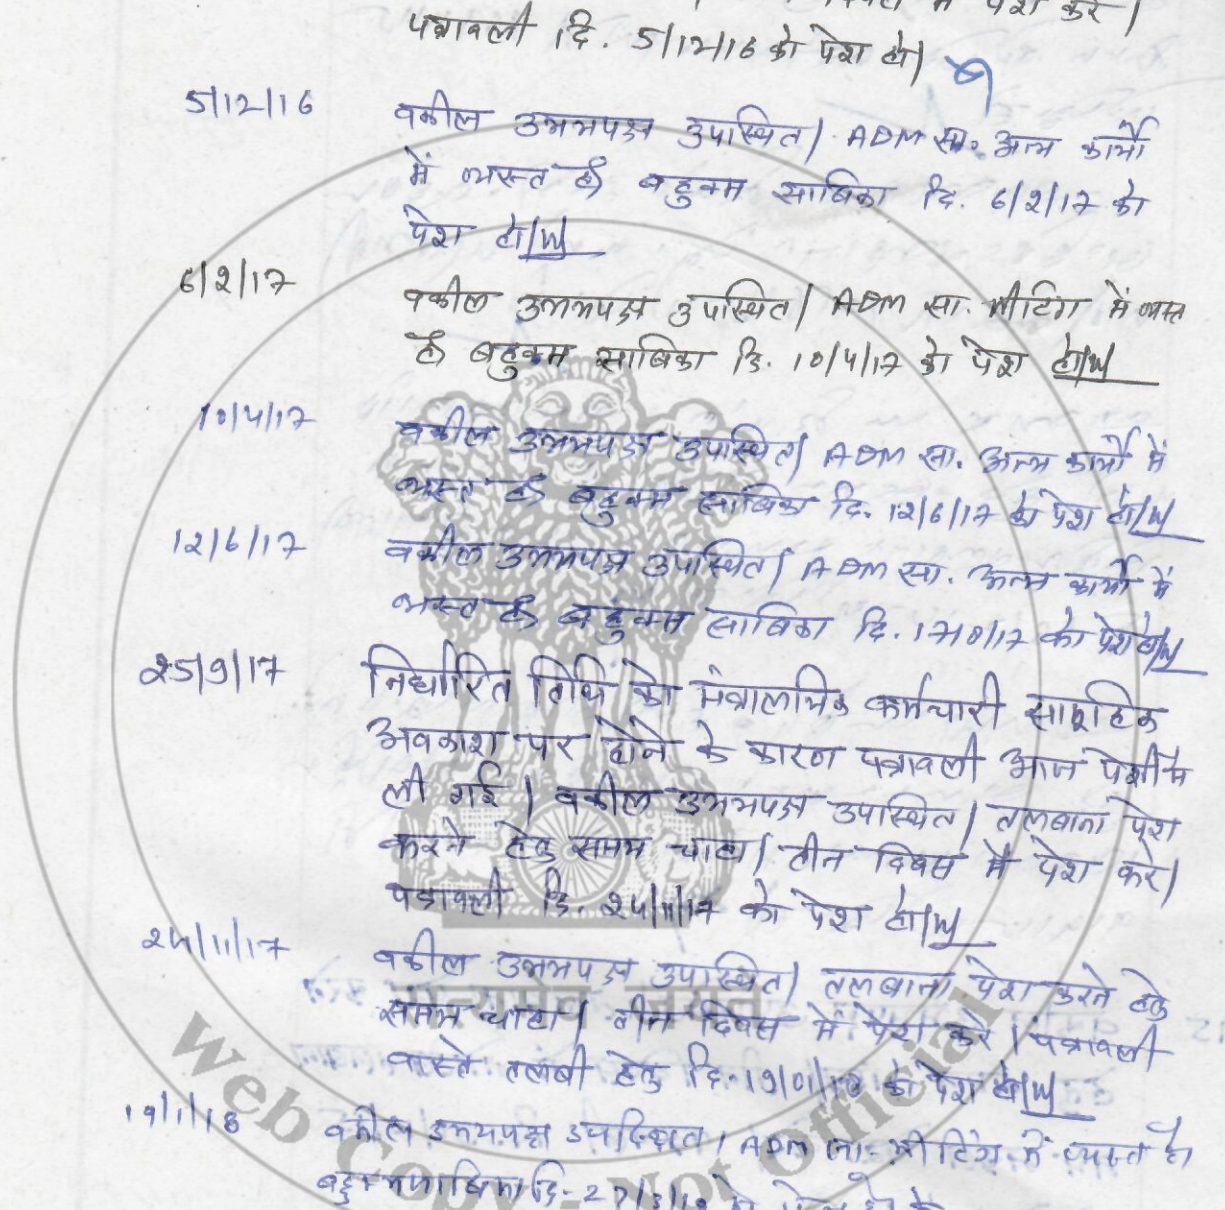 में पेश करे।
पत्रावली दि. 5/12/16 को पेश हो।
5/12/16 वकील उभयपक्ष उपस्थित। ADM सा. अन्य कार्यो
में व्यस्त है बहुक्म साबिका दि. 6/2/17 को
पेश हो।
6/2/17 वकील उभयपक्ष उपस्थित। ADM सा. मीटिंग में व्यस्त
है बहुक्म साबिका दि. 10/4/17 को पेश हो।
10/4/17 वकील उभयपक्ष उपस्थित। ADM सा. अन्य कार्यो में
व्यस्त है बहुक्म साबिका दि. 12/6/17 को पेश हो।
12/6/17 वकील उभयपक्ष उपस्थित। ADM सा. अन्य कार्यो में
व्यस्त है बहुक्म साबिका दि. को पेश हो।
25/9/17 निर्धारित तिथि को मंत्रालयिक कर्मचारी सामूहिक
अवकाश पर होने के कारण पत्रावली आज पेशी में
ली गई। वकील उभयपक्ष उपस्थित। तलबाना पेश
करने हेतु समय चाहा। तीन दिवस में पेश करे।
पत्रावली दि. 24/11/17 को पेश हो।
24/11/17 वकील उभयपक्ष उपस्थित। तलबाना पेश करने हेतु
समय चाहा। तीन दिवस में पेश करे। पत्रावली
वास्ते तलबी हेतु दि. 19/01/18 को पेश हो।
19/1/18 वकील उभयपक्ष उपस्थित। ADM सा. मीटिंग में व्यस्त है।
सत्यमेव जयते
Web Copy - Not Official